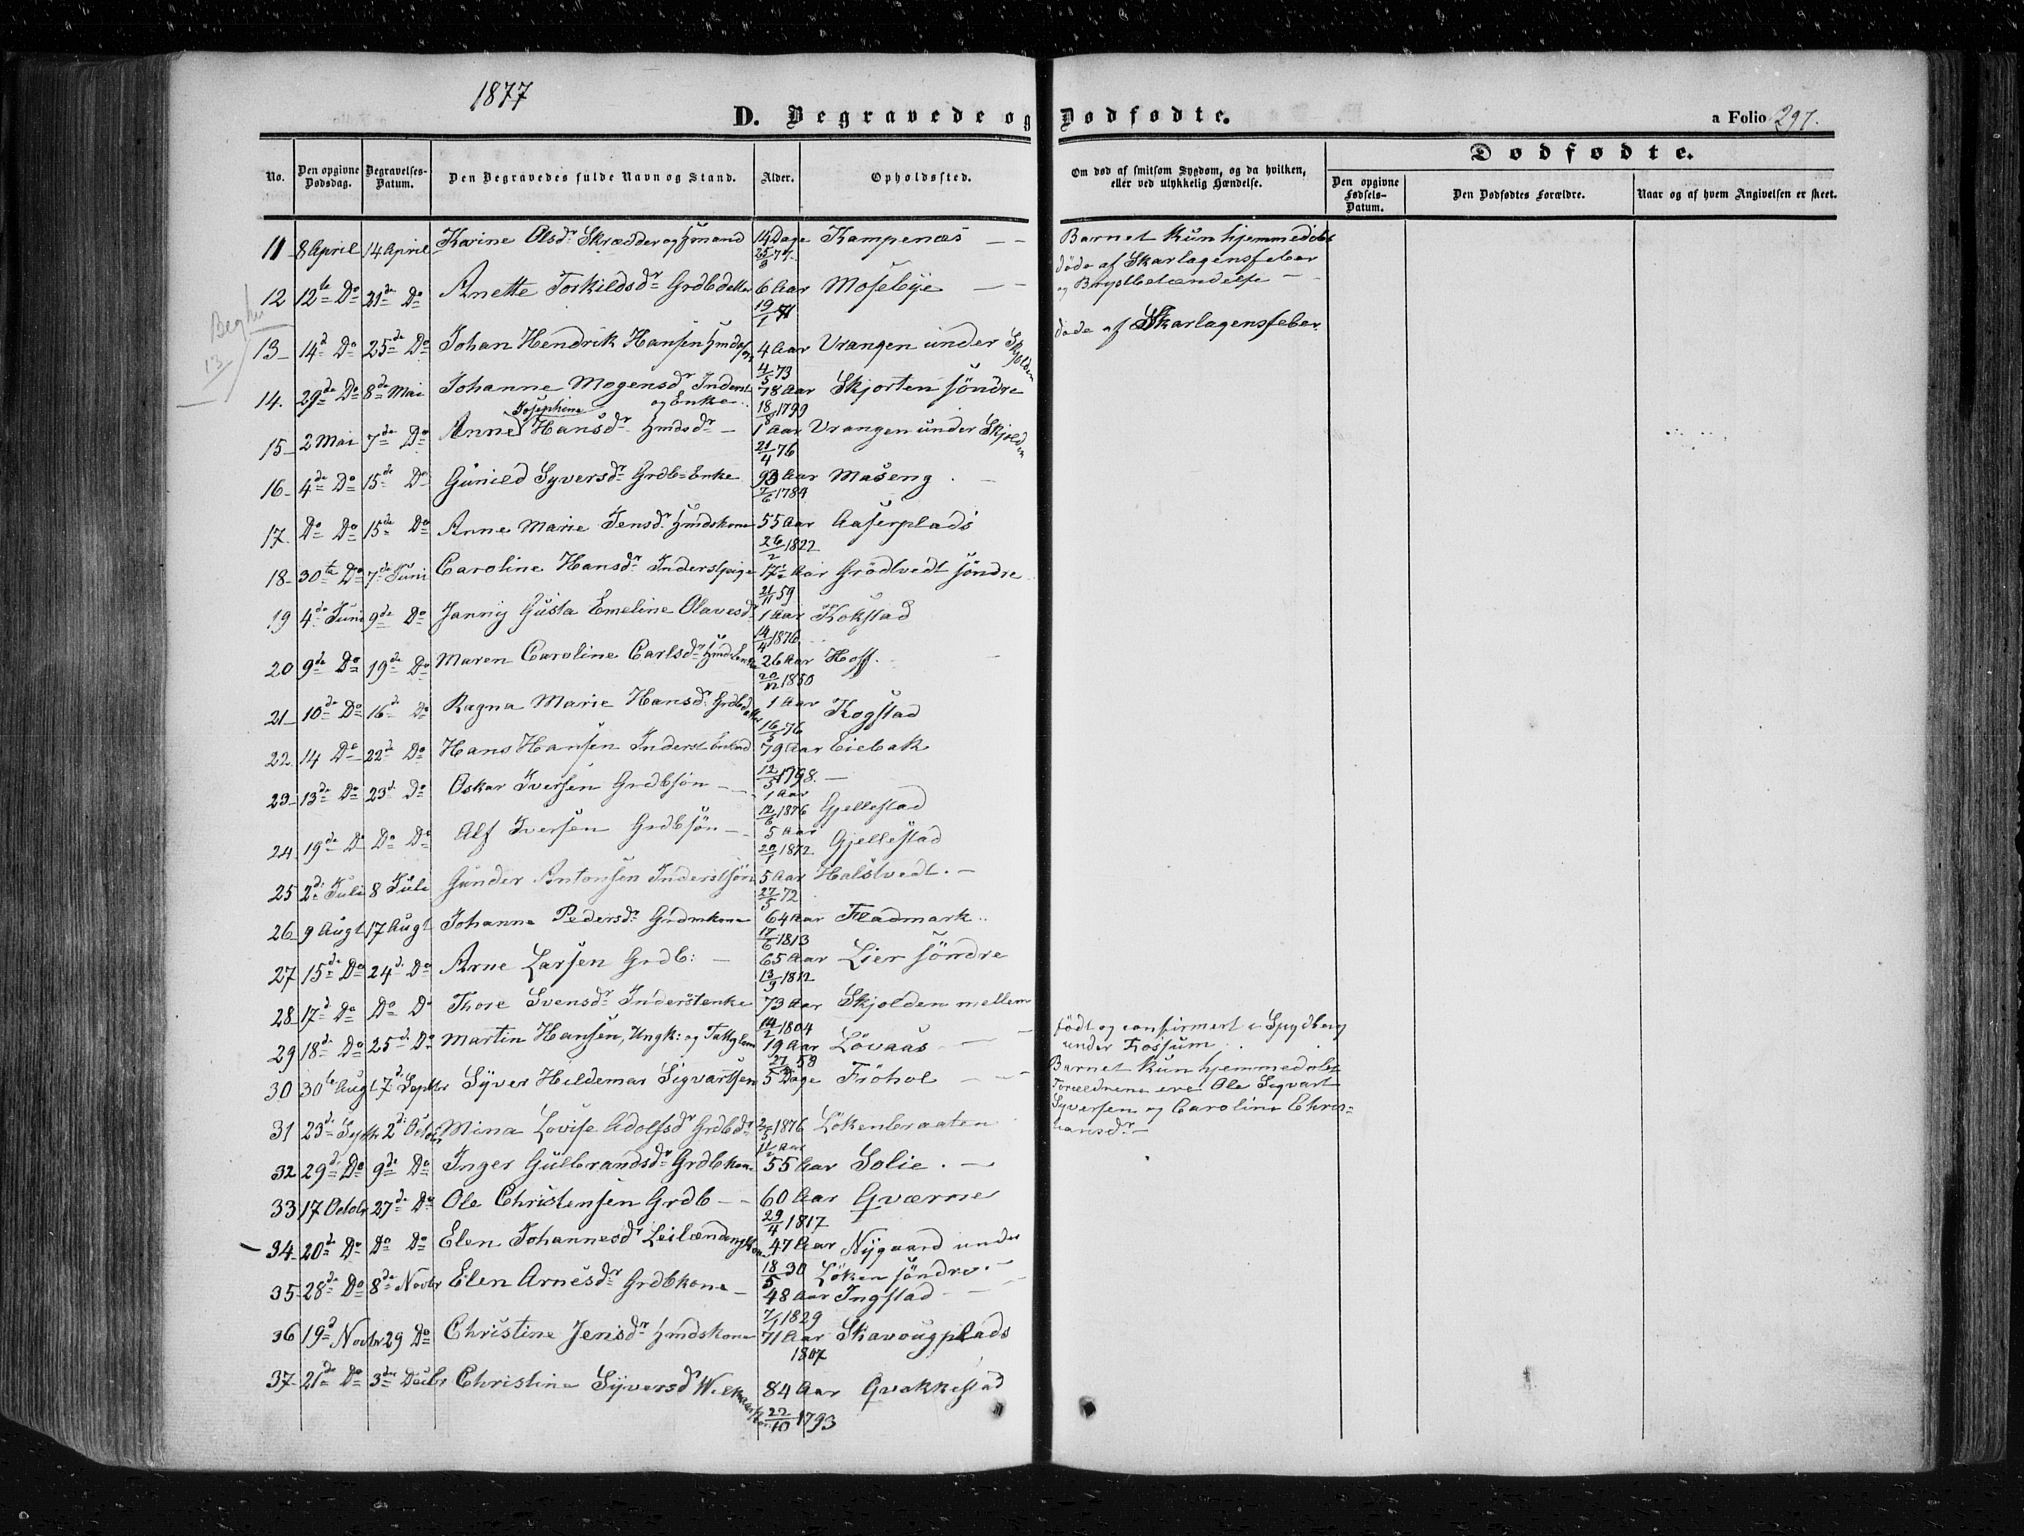 1877
D. Begravede og Dødfødte.
a Folio 297.
No. Den opgivne Dødsdag. Begravelses-Datum. Den Begravedes fulde Navn og Stand. Alder. Opholdssted. Om død af smitsom Sygdom, og da hvilken, eller ved ulykkelig Hændelse. Dødfødte. Den opgivne Fødsels-Datum. Den Dødfødtes Forældre. Naar og af hvem Angivelsen er skeet.
11 8 April 14 April Karine Olsdr Skrædder og Hmand 14 Dage 25/3 77. Kampenæs Barnet kun hjemmedøbt
12 12te Do 21de Do Anette Torkildsdr Grdbdatter 6 Aar 19/1 71 Moseby døde af Skarlagensfeber
og Brystbetændelse
13 14d Do 25de Do Johan Hendrik Hansen Hmds 4 Aar 4/5 73 Vrangen under Skjolden døde af Skarlagensfeber
14. 29de Do 8de Mai Johanne Mogensdr Inderst og Enke 78 Aar 18/8 1799 Skjorten søndre
15 2 Mai 7de Do Anne Josephine Hansdr Hmdsdr 1 Aar 21/4 76 Vrangen under Skjolden
16 4de Do 15de Do Gunild Syversdr Grdb=Enke 93 Aar 7/6 1784 Maseng
17. Do Do 15de Do Anne Marie Jensdr Hmdskone 55 Aar 26/2 1822 Aaserplads
18 30te Do 7de Juni Caroline Hansdr Inderstpige 17½ Aar 21/11 59 Grødtvedt søndre
19 4de Juni 9de Do Janny Gusta Emeline Olavesdr 1 Aar 14/4 1876 Kokstad
20 9de Do 19de Do Maren Caroline Carlsdr 26 Aar 20/12 1850 Hoff.
21 10de Do 16d Do Ragna Marie Hansdr Grdbdatter 1 Aar 16/5 76 Kogstad
22 14 Do 22d Do Hans Hansen Inderst 79 Aar 12/5 1798 Eiebak
23 13de Do 23d Do Oskar Iversen Grdbsøn 1 Aar 12/6 1876 Gjellestad
24 19de D Do Do Alf Iversen Grdbsøn 5 Aar 20/1 1872 Gjellestad
25 2d Juli 8 Juli Gunder Antonsen Inderstsøn 5 Aar 27/5 72 Halstvedt.
26 9 Augt 17 Augt Johanne Pedersdr Grdmkone 64 Aar 17/6 1813 Fladmark
27 15de Do 24d Do Arne Larsen Grdb: 65 Aar 13/9 1812 Lier søndre
28 17d Do Do Do Thore Svensdr Inderstenke 73 Aar 14/2 1804 Skjolden mellem
29 18d Do 25d Do Martin Hansen, Ungk: og 19 Aar Løvaas født og confirmert i Spydberg
under Fossum
30 30te Augt 7d Septbr Syver Hildemar Sigvartsen 5 Dage Frøhol Barnet kun hjemmedøbt
Forældrene ere Ole Sigvart
Syversen og Caroline Chris=
tiansdr
31 23de 2d Octbr Mina Lovise Adolfsdr Grdbdr 2/5 1876 1½ Aar Løkenbraaten
32 29d Do 9de Do Inger Gulbrandsdr Grdbkone 55 Aar Solie.
33 17 Octobr 27de Do Ole Christensen Grdb 60 Aar 29/4 1817 Qværnes
34 20de Do Do Do Elen Johannesdr 47 Aar 18/5 30 Nygaard under
Løken søndre
35 28de Do 8de Novbr Elen Arnesdr Grdbkone 48 Aar 7/1 1829 Ingstad
36 19d Novbr 29 Do Christine Jensdr Hmdskone 71 Aar 1807 Skavougplads
37 21de Do 3de Decbr Christine Syversdr 84 Aar 22/10 1793 Qvakkestad
13